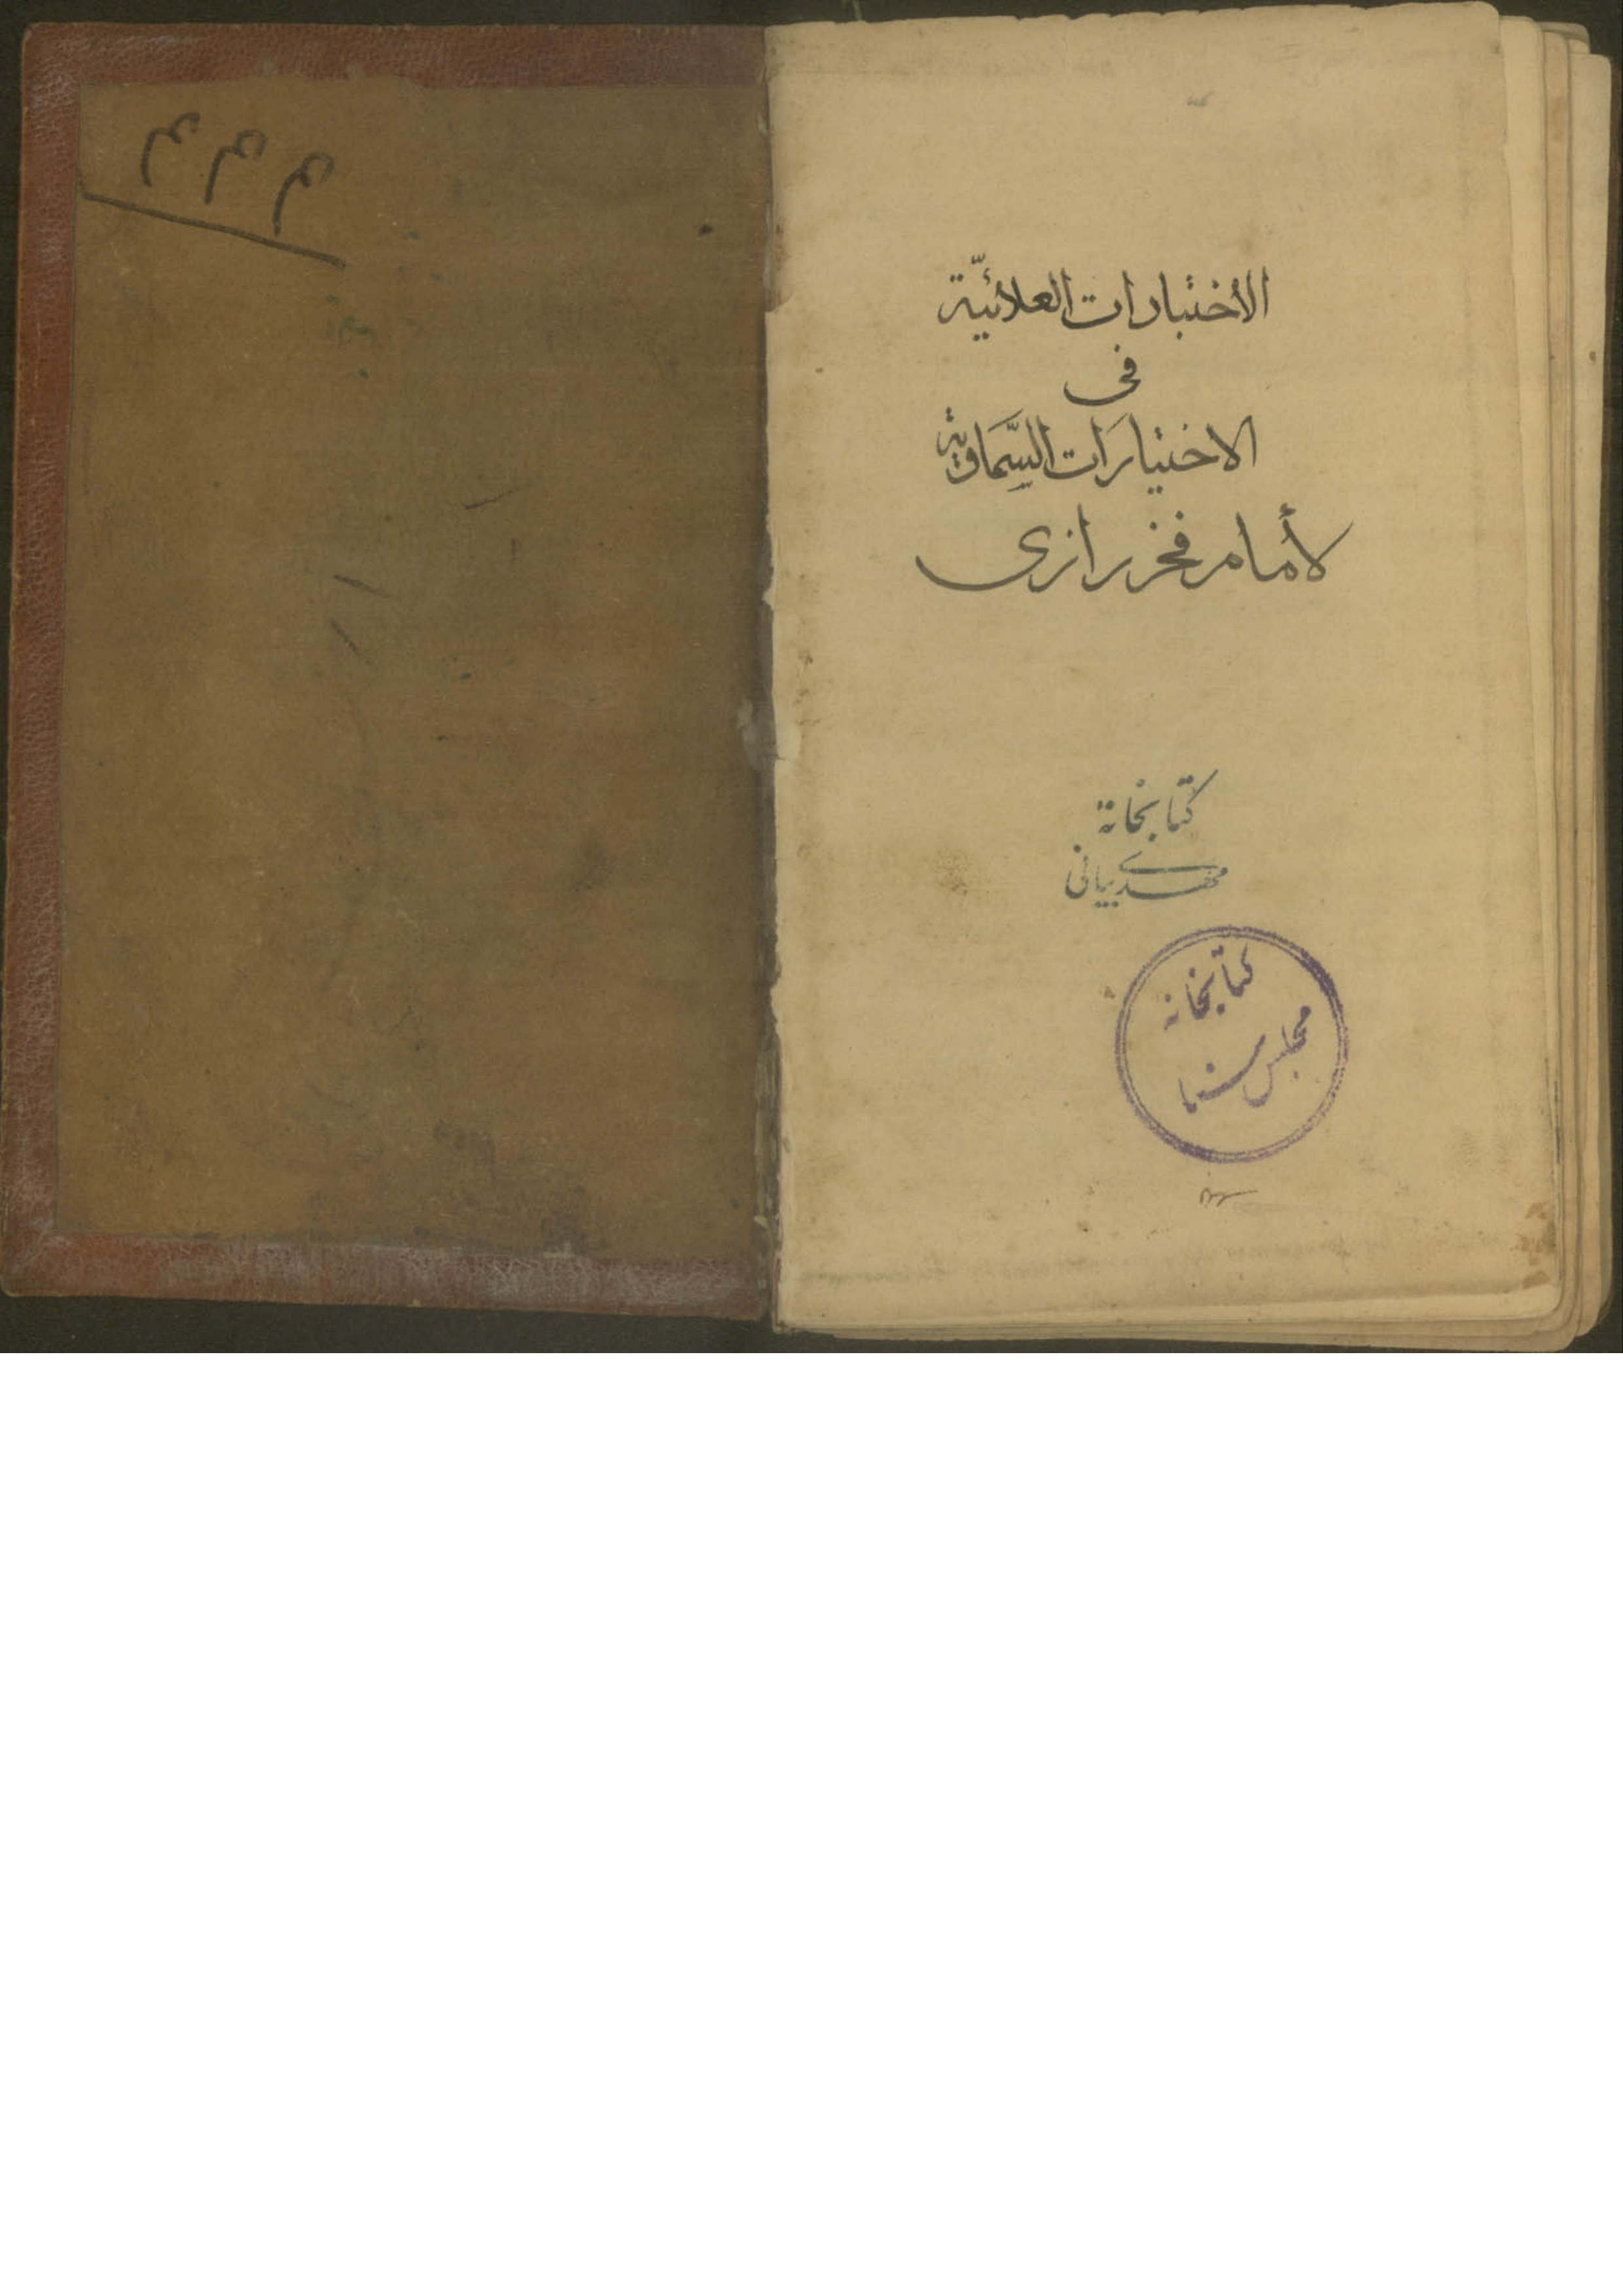 الأختيارات العلائيّة
فى
الاختيارَات السَّماوية
لأمام فخر رازى
كتابخانة
مهدى بيانى
كتابخانه
مجلس سنا